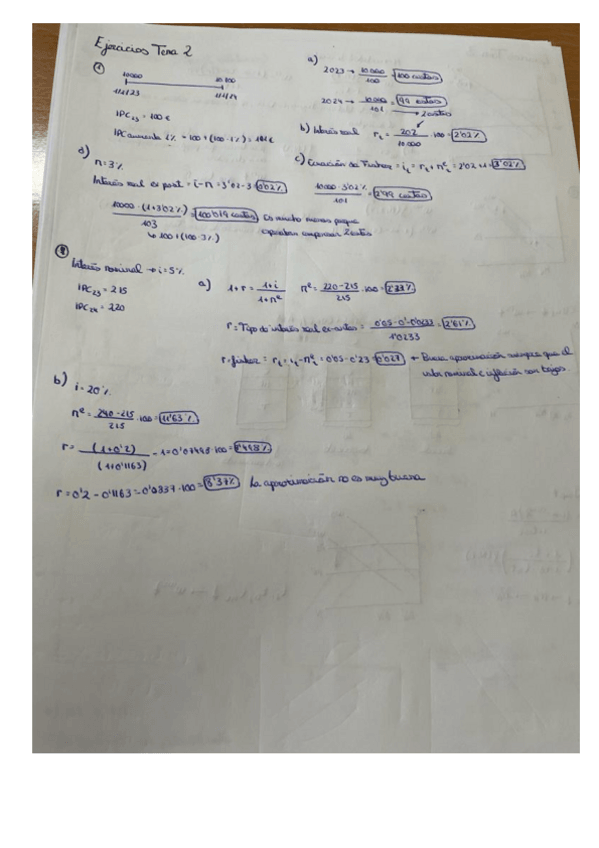 Ejercicios Tema 2
①
10000
1/1/23
1/1/24
IPC₂₃ = 100 €
IPC aumenta 1% = 100 + (100 · 1%) = 101 €
a)
2023 → 10 000 / 100 = 100 cestas
2024 → 10.000 / 101 = 99 cestas
b) Interés real r = 202 / 10.000 · 100 = 2'02%
c) Ecuación de Fisher = i = r + π = 2'02 + 1 = 3'02%
10000 · 3'02% / 101 = 2'99 cestas
d)
π = 3%
Interés real ex post = i - π = 3'02 - 3 = 0'02%
10000 · (1+3'02%) / 103 = 100'019 cestas Es mucho menos porque
esperaban 2 cestas
↳ 100 + (100 · 3%)
②
Interés nominal → i = 5%
IPC₂₃ = 215
IPC₂₄ = 220
a) 1+r = 1+i / 1+πᵉ
πᵉ = 220-215 / 215 · 100 = 2'33%
r = Tipo de interés real ex-ante = 0'05 - 0'0233 / 1'0233 = 2'61%
r = fisher = r = i - πᵉ = 0'05 - 0'23 = 0'027 → Buena aproximación siempre que el
nominal e inflación son bajos.
b) i = 20%
πᵉ = 240-215 / 215 · 100 = 11'63%
r = (1+0'2) / (1+0'1163) - 1 = 0'07498 · 100 = 7'498%
r = 0'2 - 0'1163 = 0'0837 · 100 = 8'37% La aproximación no es muy buena